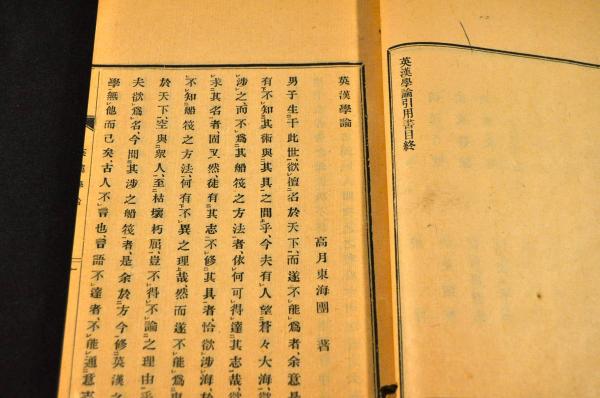 英漢學論引用書目終
英漢學論
高月東海團 著
男子生于此世、欲擅名於天下、而遂不能爲者、余意
有不知其術與其具之間乎、今夫有人望蒼々大海、欲
涉之、而不知其船筏之方法者、依何可得達其志哉、欲
求其名者固又然、徒有其志不修其具者恰欲涉海於
不知船筏之方法、何有不異之理哉然而遂不能爲
於天下、空與衆人、至枯壞朽屈、豈不得不論之理由乎
夫欲爲名今問其涉之船筏者、是余於方今修英漢之
學無他而已矣、古人不言也、言語不達者、不能通意志